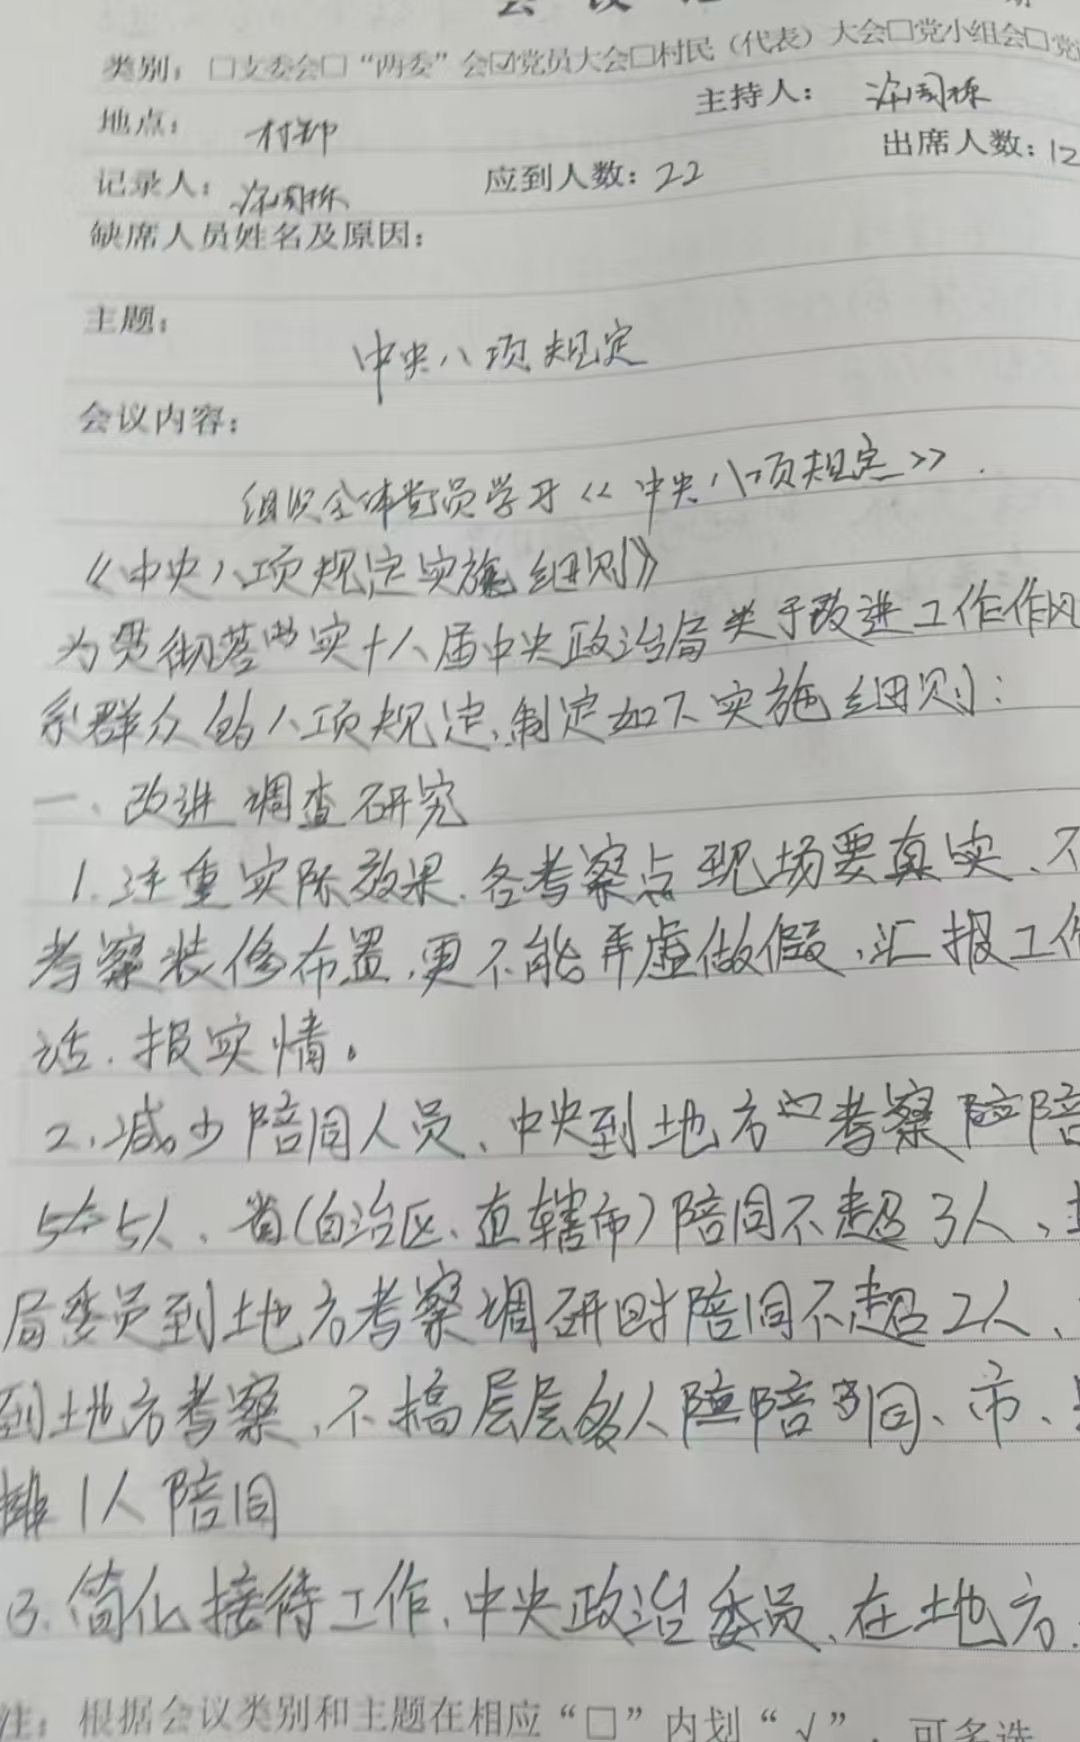 会议
类别：□支委会□“两委”会☑党员大会□村民（代表）大会□党小组会□党
地点： 村部 主持人： 涂国栋
记录人： 涂国栋 应到人数：22 出席人数：12
缺席人员姓名及原因：
主题：
中央八项规定
会议内容：
组织全体党员学习《中央八项规定》.
《中央八项规定实施细则》
为贯彻落实十八届中央政治局关于改进工作作风
系群众的八项规定,制定如下实施细则：
一、改进调查研究
1.注重实际效果.各考察点现场要真实、不
考察装修布置,更不能弄虚做假,汇报工作
话.报实情。
2.减少陪同人员、中央到地方的考察陪
5人、省(自治区、直辖市)陪同不超3人、
局委员到地方考察调研时陪同不超2人、
到地方考察,不搞层层多人陪同、市、
排1人陪同
3.简化接待工作.中央政治委员、在地方
注：根据会议类别和主题在相应“□”内划“√”，可多选